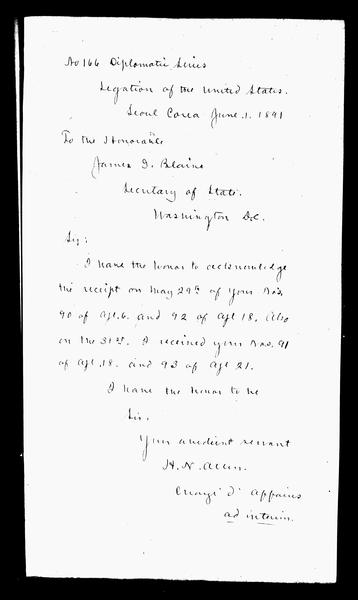 No 166 Diplomatic Series
Legation of the United States.
Seoul Corea June. 1. 1891
To the Honorable
James G. Blaine
Secretary of State.
Washington D.C.
Sir:
I have the honor to acknowledge
the receipt on May 29th of your Nos.
90 of Apl. 6. and 92 of Apl 18. Also
on the 31st. I received your Nos. 91
of Apl. 18. and 93 of Apl 21.
I have the honor to be
Sir.
Your obedient servant
H. N. Allen.
Chargé d' Affaires
ad interim.